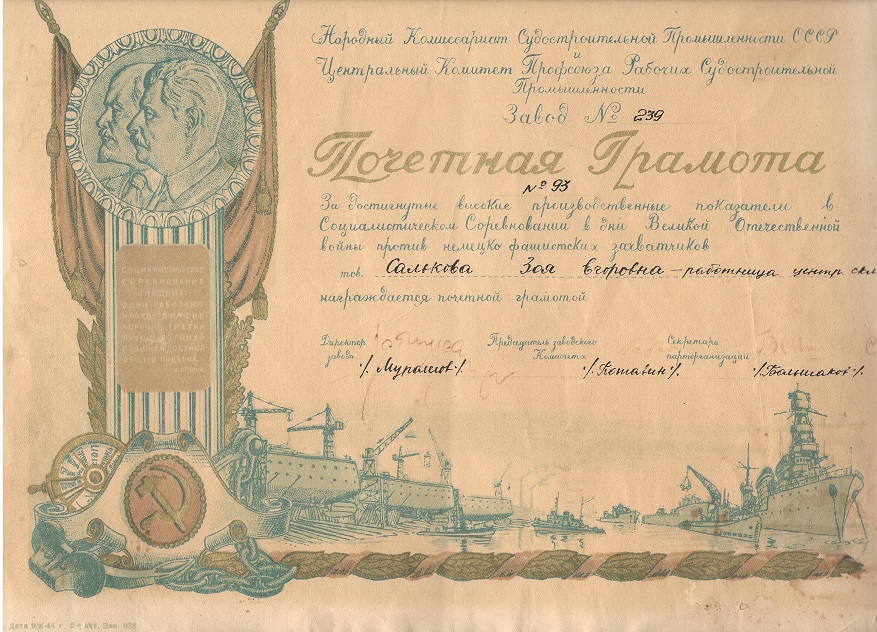 Народный Комиссариат Судостроительной Промышленности СССР
и
Центральный Комитет Профсоюза Рабочих Судостроительной
Промышленности
Завод № 239
Почетная Грамота
№ 93
За достигнутые высокие производственные показатели в
Социалистическом Соревновании в дни Великой Отечественной
войны против немецко фашистских захватчиков
тов. Салькова Зоя Егоровна – работница центр. скл
награждается почетной грамотой
Директор завода /. Мурашов /.
Председатель заводского Комитета /. Потапин /.
Секретарь парторганизации /. Большаков /.
СОЦИАЛИСТИЧЕСКОЕ
СОРЕВНОВАНИЕ
ГОВОРИТ:
ОДНИ РАБОТАЮТ
ПЛОХО, ДРУГИЕ
ХОРОШО, ТРЕТЬИ
ЛУЧШЕ